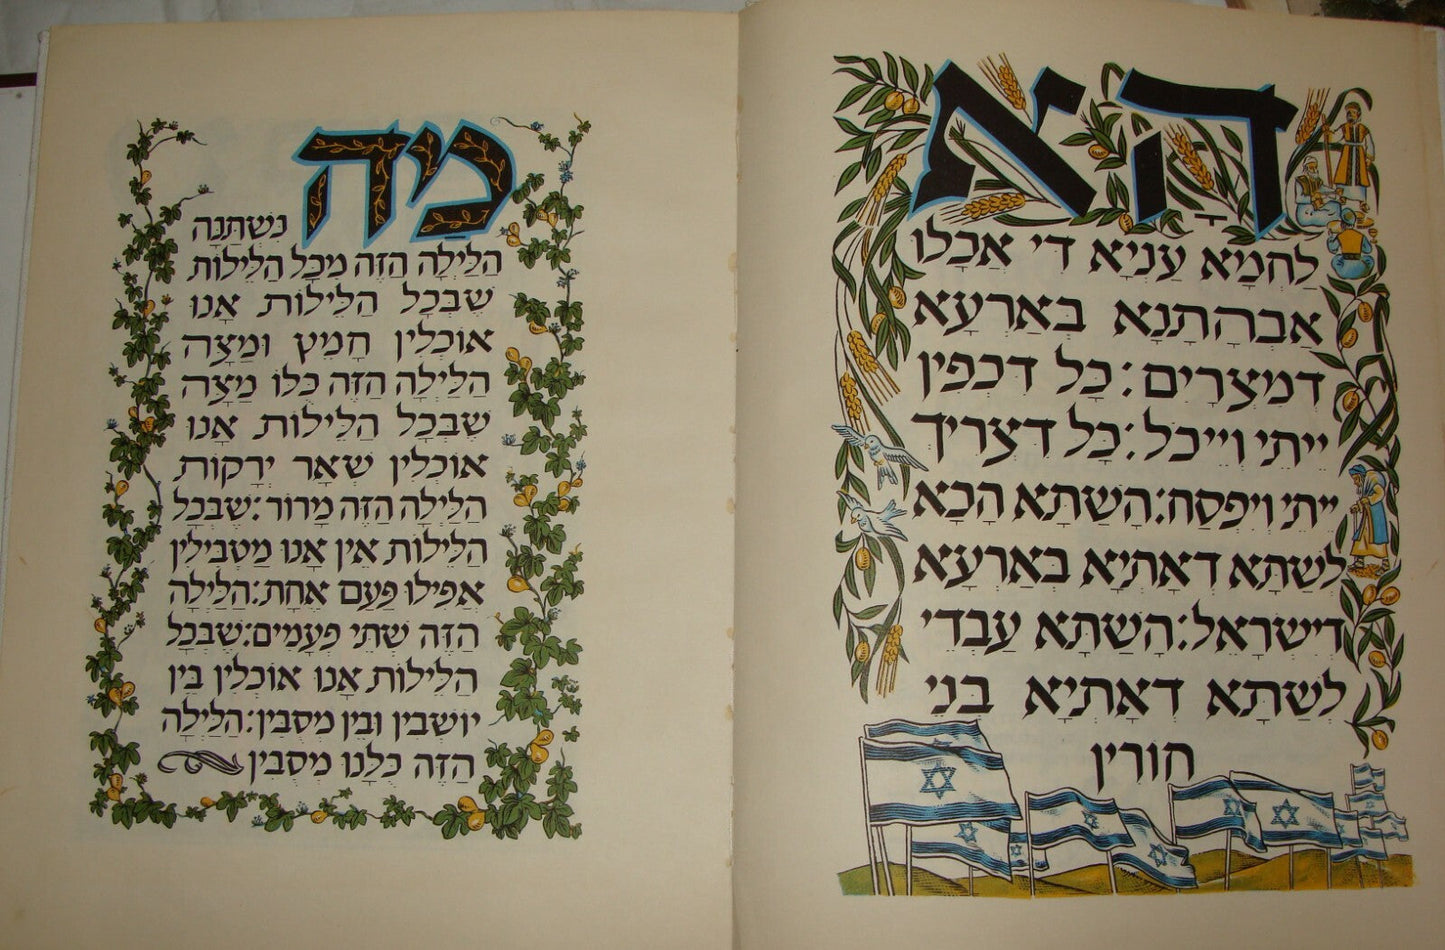 הָא
לַחְמָא עַנְיָא דִי אֲכָלוּ
אַבְהָתָנָא בְּאַרְעָא
דְמִצְרָיִם: כָּל דִכְפִין
יֵיתֵי וְיֵיכֹל: כָּל דִצְרִיךְ
יֵיתֵי וְיִפְסַח: הָשַׁתָּא הָכָא
לְשַׁתָּא דְאָתְיָא בְּאַרְעָא
דְיִשְׂרָאֵל: הָשַׁתָּא עַבְדֵי
לְשַׁתָּא דְאָתְיָא בְּנֵי
חוֹרִין
מַה
נִּשְׁתַּנָּה
הַלַּיְלָה הַזֶּה מִכָּל הַלֵּילוֹת
שֶׁבְּכָל הַלֵּילוֹת אָנוּ
אוֹכְלִין חָמֵץ וּמַצָּה
הַלַּיְלָה הַזֶּה כֻּלּוֹ מַצָּה
שֶׁבְּכָל הַלֵּילוֹת אָנוּ
אוֹכְלִין שְׁאָר יְרָקוֹת
הַלַּיְלָה הַזֶּה מָרוֹר: שֶׁבְּכָל
הַלֵּילוֹת אֵין אָנוּ מַטְבִּילִין
אֲפִילוּ פַּעַם אֶחָת: הַלַּיְלָה
הַזֶּה שְׁתֵּי פְעָמִים: שֶׁבְּכָל
הַלֵּילוֹת אָנוּ אוֹכְלִין בֵּין
יוֹשְׁבִין וּבֵין מְסֻבִּין: הַלַּיְלָה
הַזֶּה כֻּלָּנוּ מְסֻבִּין